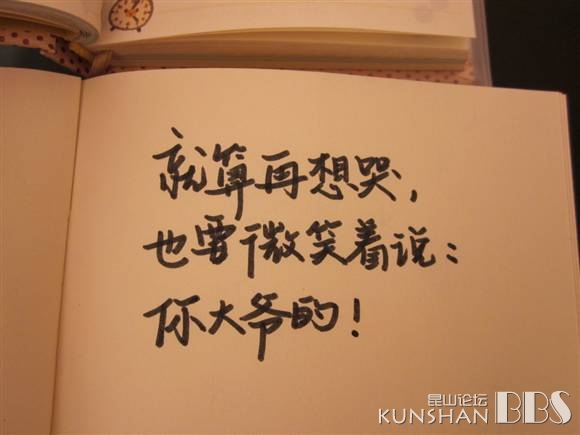 就算再想哭，
也要微笑着说：
你大爷的！
昆山论坛
KUNSHAN BBS